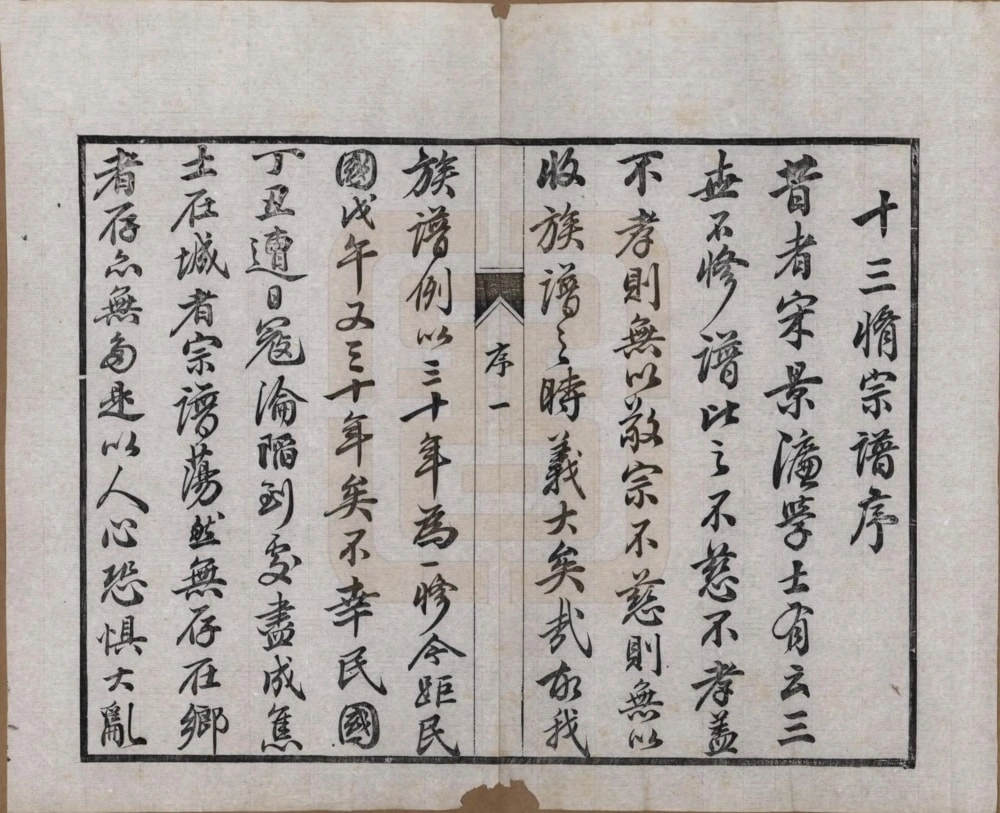 十三脩宗譜序
昔者宋景濂學士有云三
世不修譜比之不慈不孝蓋
不孝則無以敬宗不慈則無以
收族譜之時義大矣哉故我
序一
族譜例以三十年為一修今距民
國戊午又三十年矣不幸民國
丁丑遭日寇淪陷到處盡成焦
土在城者宗譜蕩然無存在鄉
者存亦無多是以人心恐惧大亂